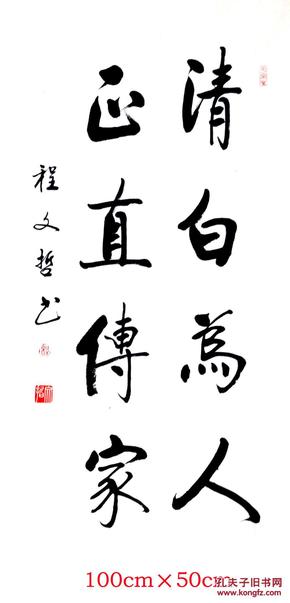 清白為人
正直傳家
程文哲书
100cm×50c
孔夫子旧书网
www.kongfz.com